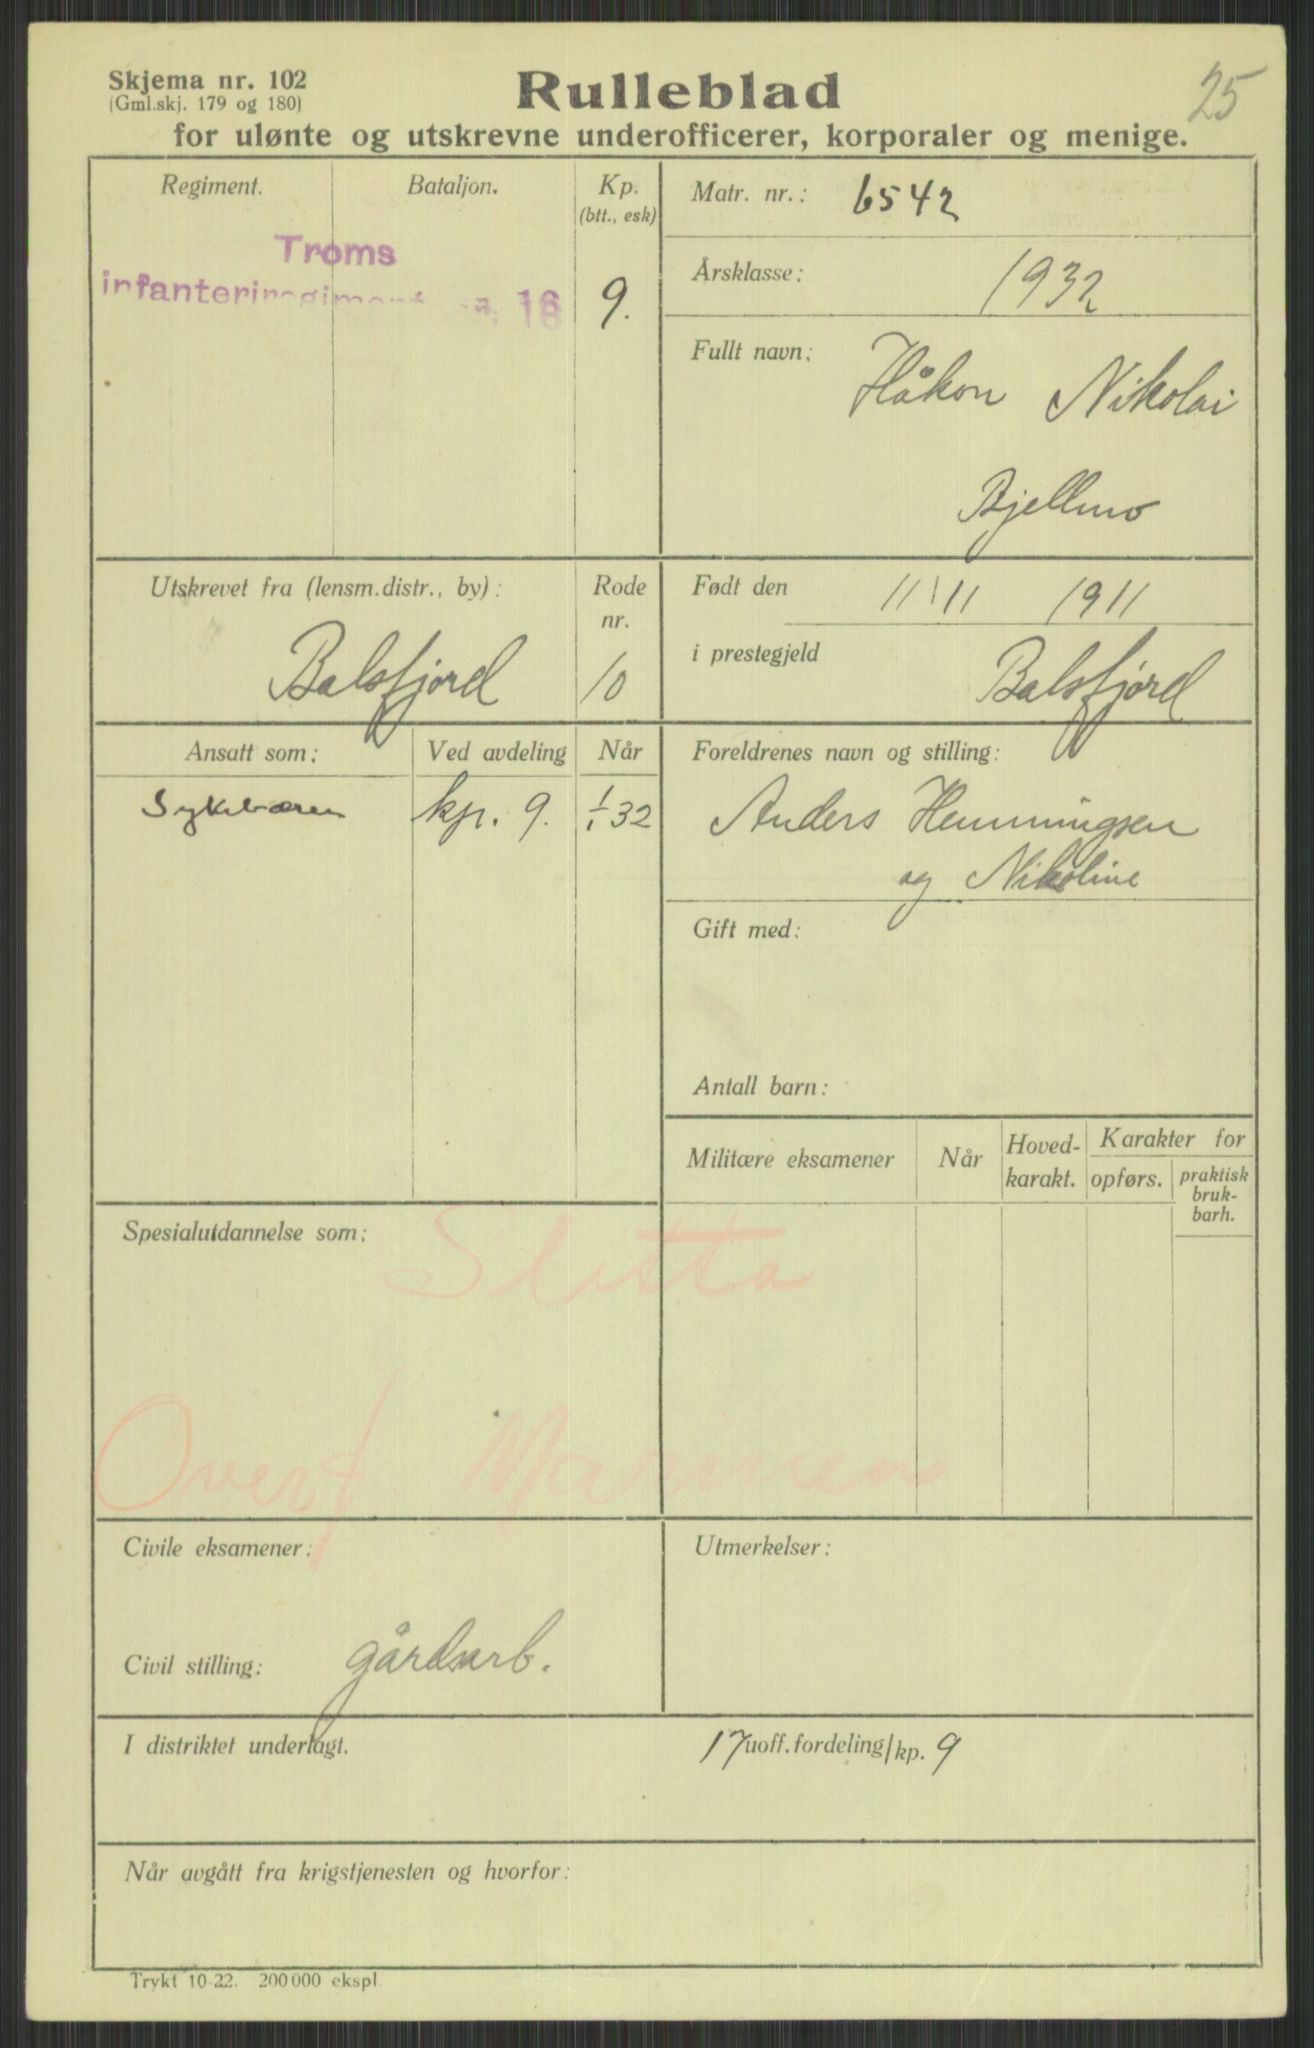 Skjema nr. 102
(Gml.skj. 179 og 180)
Rulleblad
25
for ulønte og utskrevne underofficerer, korporaler og menige.
Regiment.
Bataljon.
Kp.
(btt., esk)
Troms
infanteriregiment nr. 16
9.
Matr. nr.: 6542
Årsklasse: 1932
Fullt navn: Håkon Nikolai
Bjellmo
Utskrevet fra (lensm.distr., by):
Balsfjord
Rode
nr.
10
Født den 11/11 1911
i prestegjeld Balsfjord
Ansatt som:
Ved avdeling
Når
Sykebærer
kp. 9.
1/1 32
Foreldrenes navn og stilling:
Anders Hemmingsen
og Nikoline
Gift med:
Antall barn:
Militære eksamener
Når
Hoved-
karakt.
Karakter for
opførs.
praktisk
bruk-
barh.
Spesialutdannelse som:
Sletta
Overf. Marinen
Civile eksamener:
Civil stilling: gårdsarb.
Utmerkelser:
I distriktet underlagt.
17 uoff.fordeling/kp. 9
Når avgått fra krigstjenesten og hvorfor:
Trykt 10-22. 200 000 ekspl.